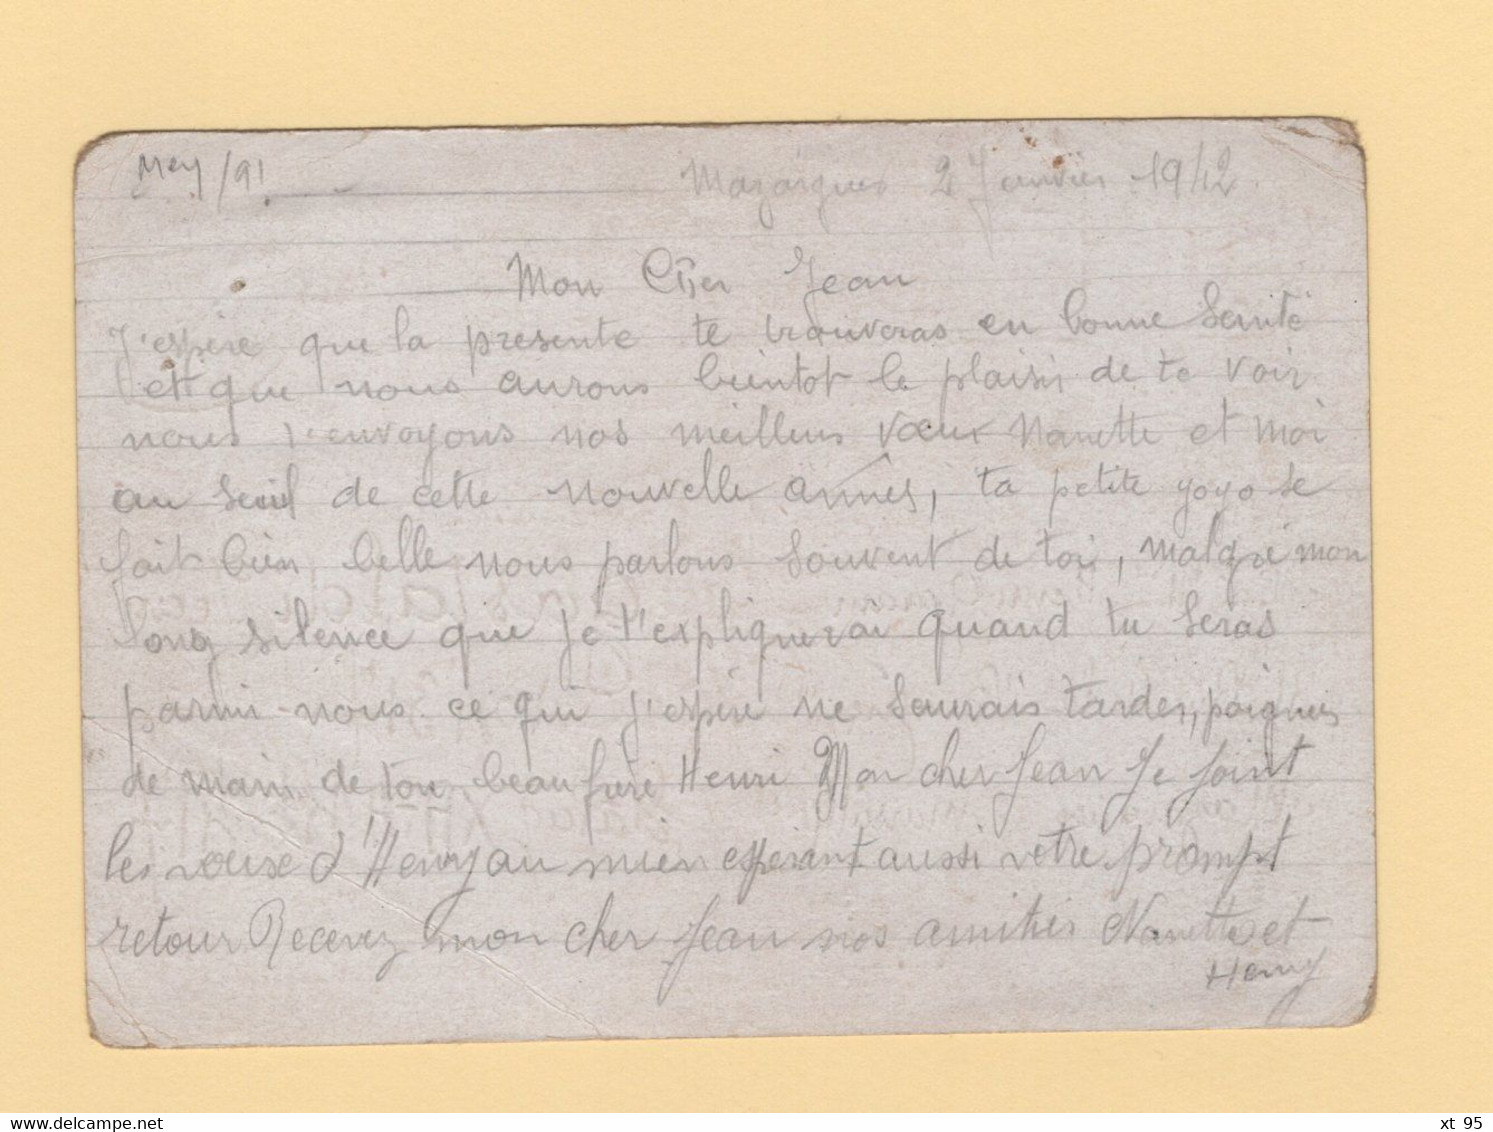 Mazargues 2 Janvier 1942
Mon Cher Jean
J'espère que la presente te trouveras en bonne Senité
et que nous aurons bientot le plaisir de te voir
nous t'envoyons nos meilleurs vœux Nanette et Moi
au seuil de cette nouvelle année, ta petite yoyo se
fait bien belle nous parlons souvent de toi, malgré mon
long silence que je t'expliquerai quand tu seras
parmi-nous ce qui j'espère ne saurais tarder, poignées
de main de ton beau frère Henri Mon cher Jean Je joint
les vœux d'Henry au mien esperant aussi votre prompt
retour Recevez mon cher Jean nos amitiés Nanette et
Henry
xt 95